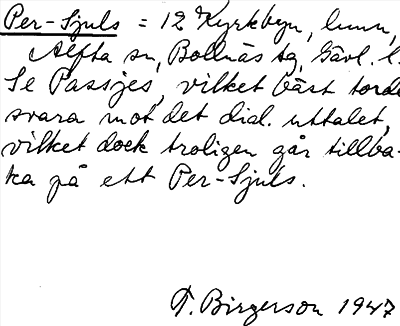 Per-Sjuls = 12 Kyrkbyn, hemn,
Alfta sn, Bollnäs tg, Gävl. l.
Se Passjes, vilket bäst torde
svara mot det dial. uttalet,
vilket dock troligen går tillba-
ka på ett Per-Sjuls.
T. Birgerson 1947